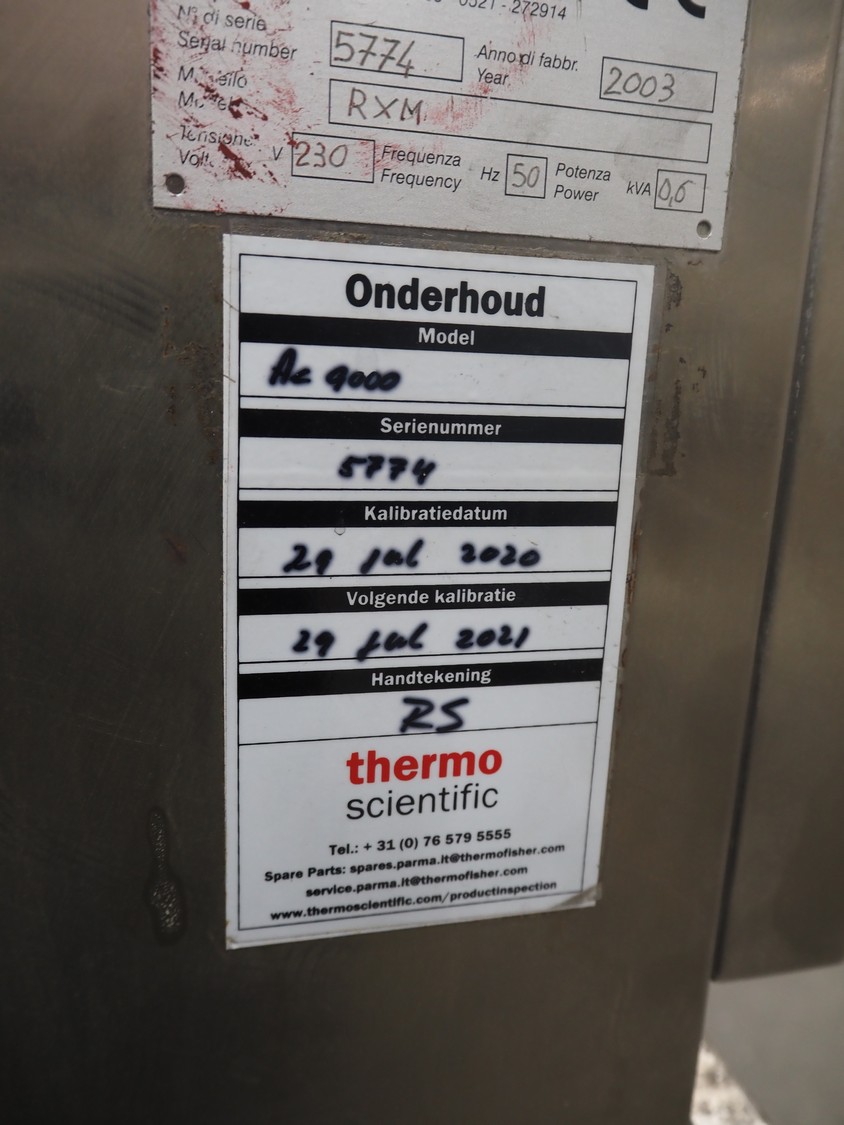 0521 - 272914
N° di serie
Serial number
5774
Anno di fabbr.
Year
2003
RXM
V
230
Frequenza
Frequency
Hz
50
Potenza
Power
kVA
0,6
Onderhoud
Model
Ac 9000
Serienummer
5774
Kalibratiedatum
29 jul 2020
Volgende kalibratie
29 jul 2021
Handtekening
RS
thermo
scientific
Tel.: + 31 (0) 76 579 5555
Spare Parts: spares.parma.it@thermofisher.com
service.parma.it@thermofisher.com
www.thermoscientific.com/productinspection